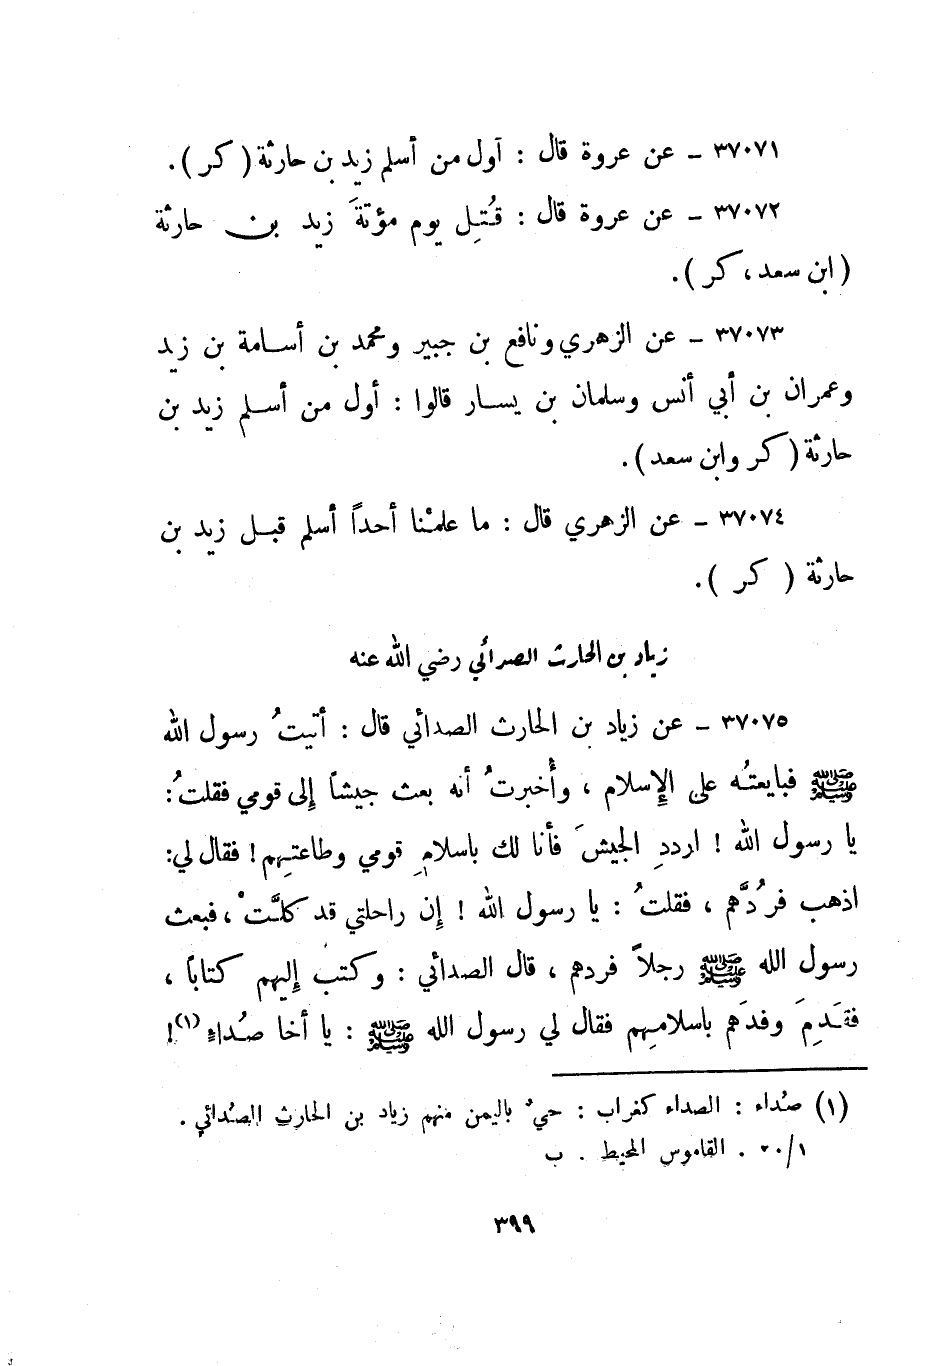 ٣٧٠٧١ ـ عن عروة قال : أول من أسلم زيد بن حارثة ( كر ) .
٣٧٠٧٢ ـ عن عروة قال : قُتِل يوم مؤتةَ زيد بن حارثة
( ابن سعد ، كر ) .
٣٧٠٧٣ ـ عن الزهري ونافع بن جبير ومحمد بن أسامة بن زيد
وعمران بن أبي أنس وسلمان بن يسار قالوا : أول من أسلم زيد بن
حارثة ( كر وابن سعد ) .
٣٧٠٧٤ ـ عن الزهري قال : ما علمْنا أحداً أسلم قبل زيد بن
حارثة ( كر ) .
زياد بن الحارث الصدائي رضي الله عنه
٣٧٠٧٥ ـ عن زياد بن الحارث الصدائي قال : أتيتُ رسول الله
ﷺ فبايعتُه على الإسلام ، وأُخبرتُ أنه بعث جيشاً إلى قومي فقلتُ :
يا رسول الله ! ارددِ الجيشَ فأنا لك باسلامِ قومي وطاعتِهم ! فقال لي :
اذهب فرُدَّهم ، فقلتُ : يا رسول الله ! إن راحلتي قد كلَّتْ ، فبعث
رسول الله ﷺ رجلاً فردهم ، قال الصدائي : وكتب إليهم كتاباً ،
فقَدِمَ وفدَهم باسلامِهم فقال لي رسول الله ﷺ : يا أخا صُداءٍ (١) !
(١) صُداء : الصداء كغراب : حيٌ باليمن منهم زياد بن الحارث الصُدائي .
١/٢٠ . القاموس المحيط . ب
٣٩٩